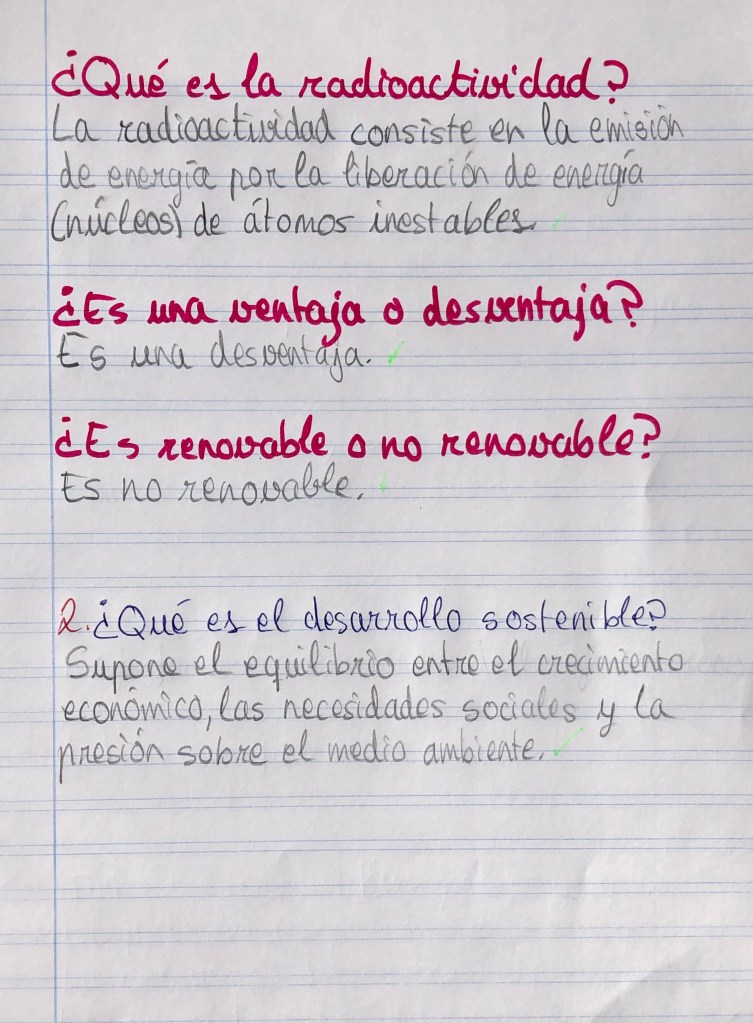 ¿Qué es la radioactividad?
La radioactividad consiste en la emisión
de energía por la liberación de energía
(núcleos) de átomos inestables.
¿Es una ventaja o desventaja?
Es una desventaja.
¿Es renovable o no renovable?
Es no renovable.
2. ¿Qué es el desarrollo sostenible?
Supone el equilibrio entre el crecimiento
económico, las necesidades sociales y la
presión sobre el medio ambiente.